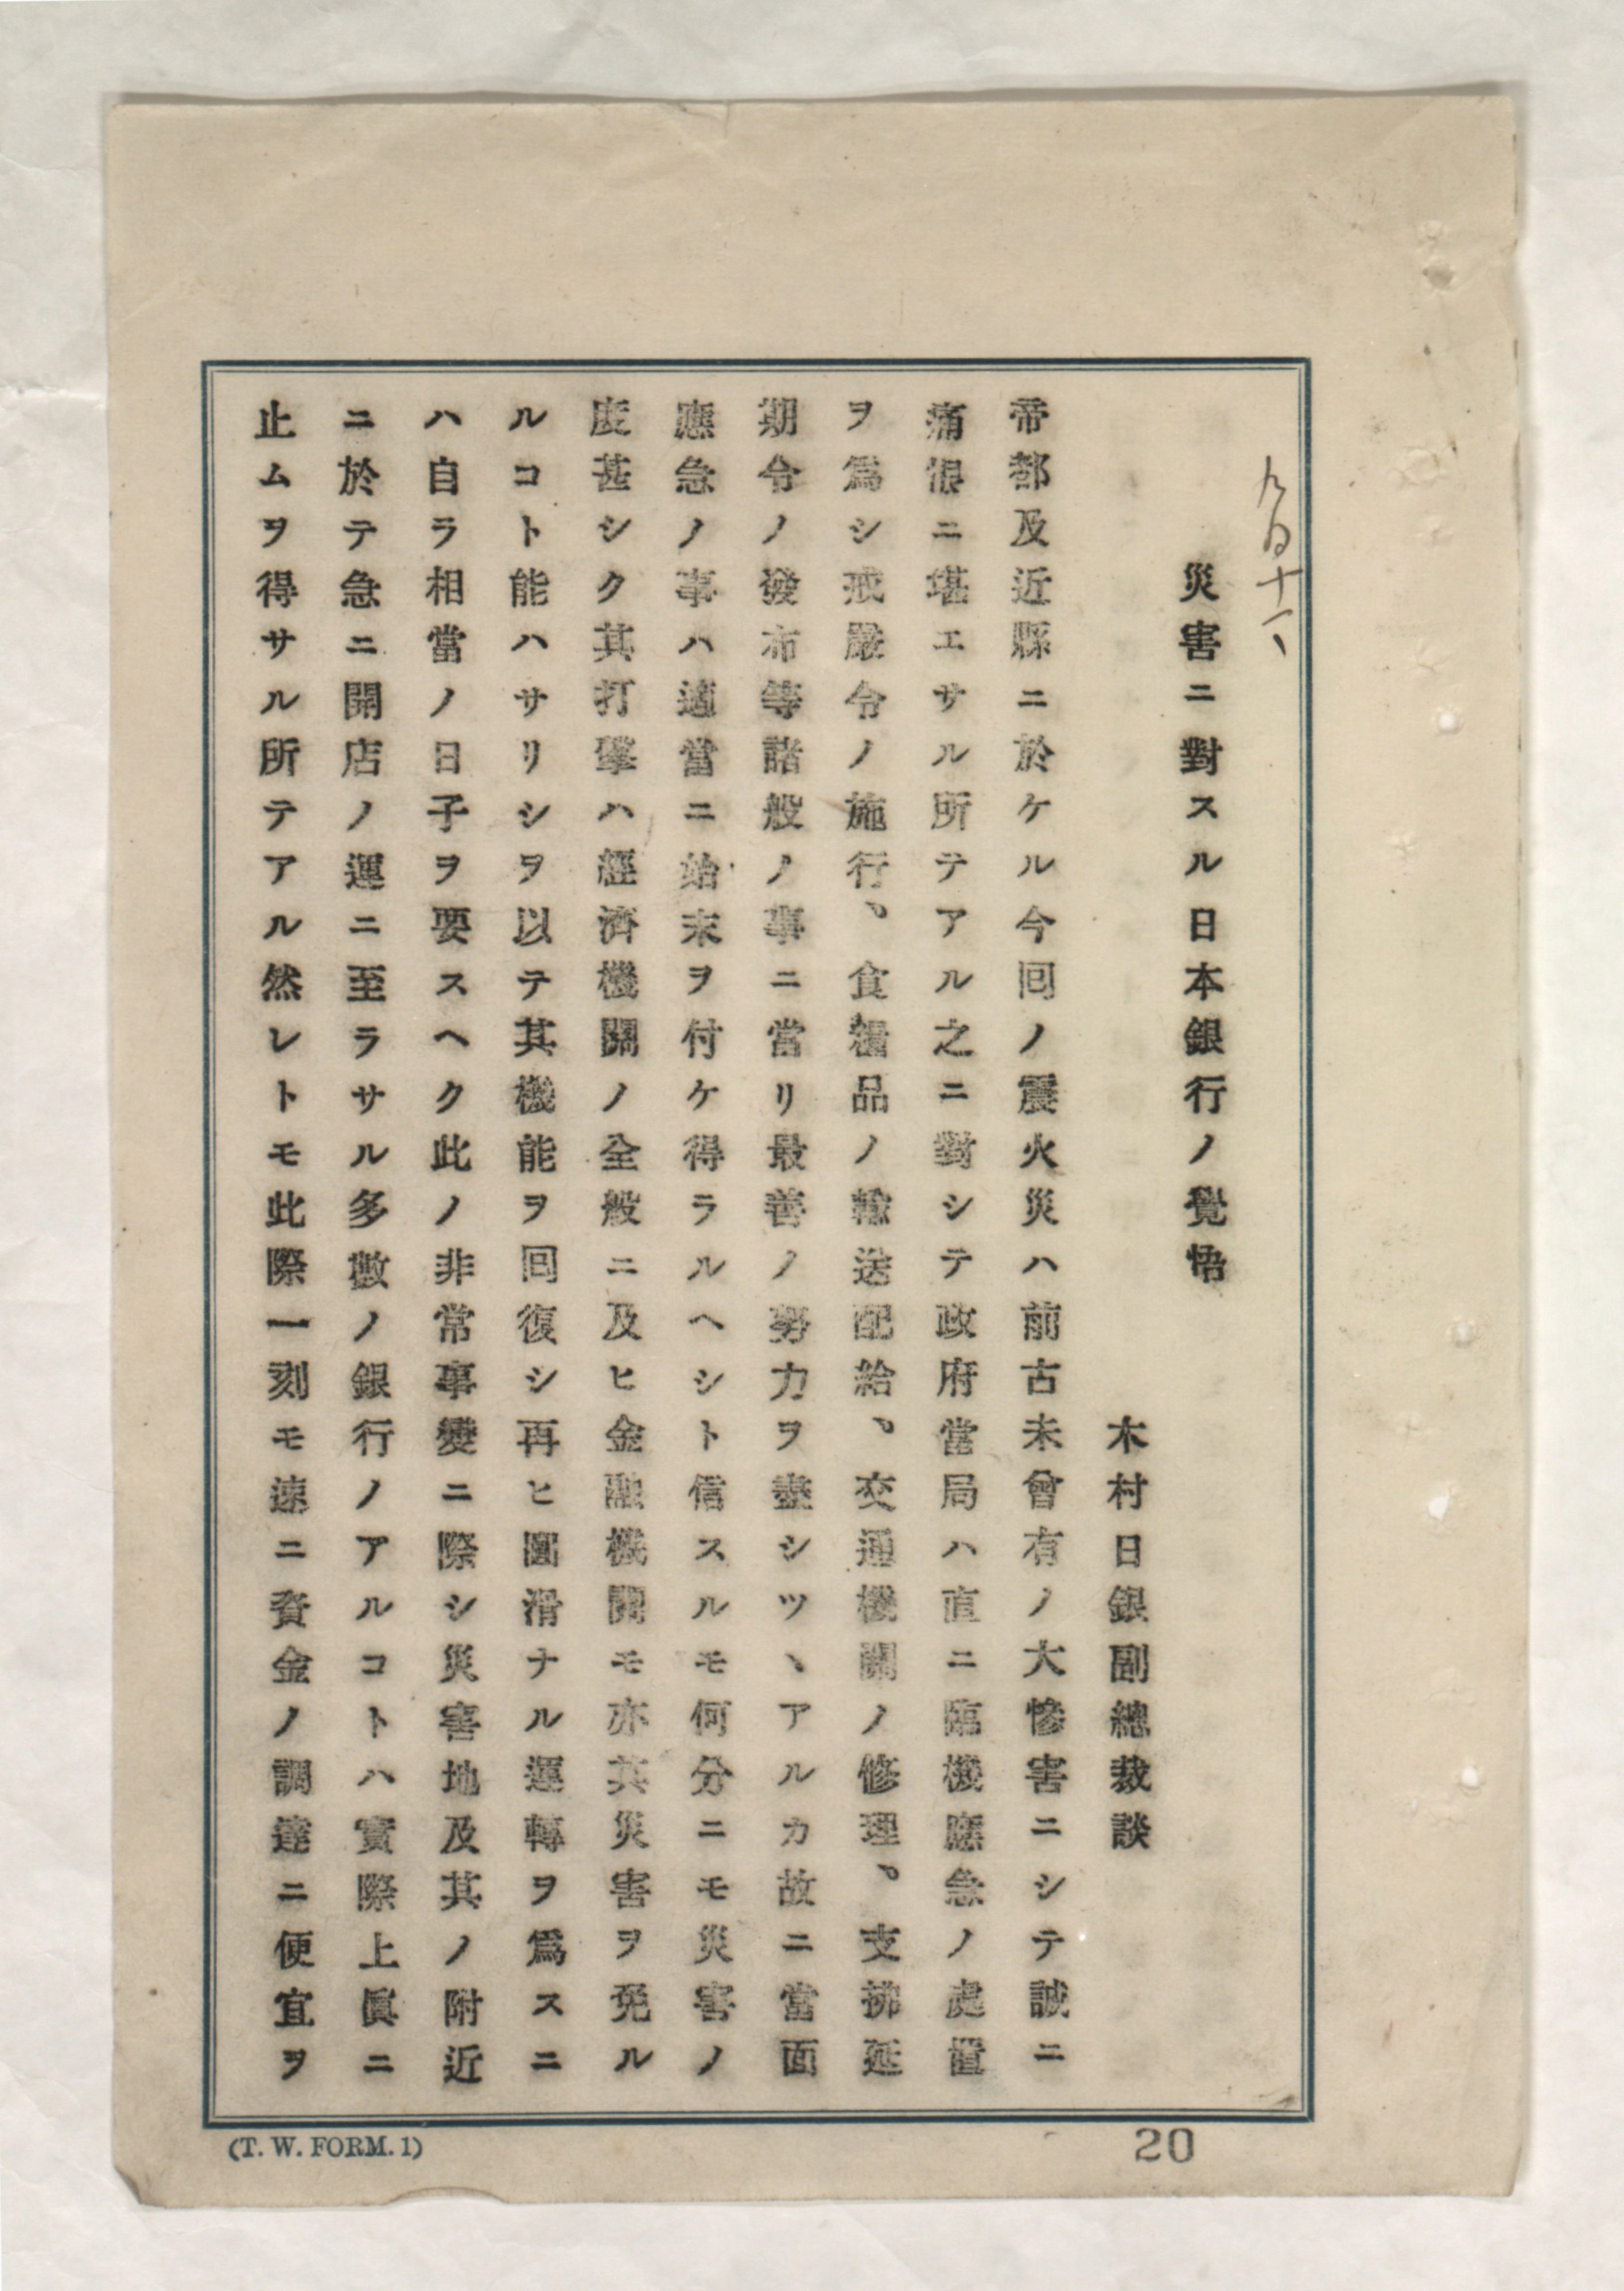 災害ニ對スル日本銀行ノ覺悟
木村日銀副總裁談
帝都及近縣ニ於ケル今回ノ震火災ハ前古未曾有ノ大慘害ニシテ誠ニ
痛恨ニ堪エサル所テアル之ニ對シテ政府當局ハ直ニ臨機應急ノ處置
ヲ爲シ戒嚴令ノ施行、食糧品ノ輸送配給、交通機關ノ修理、支拂延
期令ノ發布等諸般ノ事ニ當リ最善ノ努力ヲ盡シツヽアルカ故ニ當面
應急ノ事ハ適當ニ始末ヲ付ケ得ラルヘシト信スルモ何分ニモ災害ノ
度甚シク其打擊ハ經濟機關ノ全般ニ及ヒ金融機關モ亦其災害ヲ免ル
ルコト能ハサリシヲ以テ其機能ヲ回復シ再ヒ圓滑ナル運轉ヲ爲スニ
ハ自ラ相當ノ日子ヲ要スヘク此ノ非常事變ニ際シ災害地及其ノ附近
ニ於テ急ニ開店ノ運ニ至ラサル多數ノ銀行ノアルコトハ實際上眞ニ
止ムヲ得サル所テアル然レトモ此際一刻モ速ニ資金ノ調達ニ便宜ヲ
(T. W. FORM. 1)
20